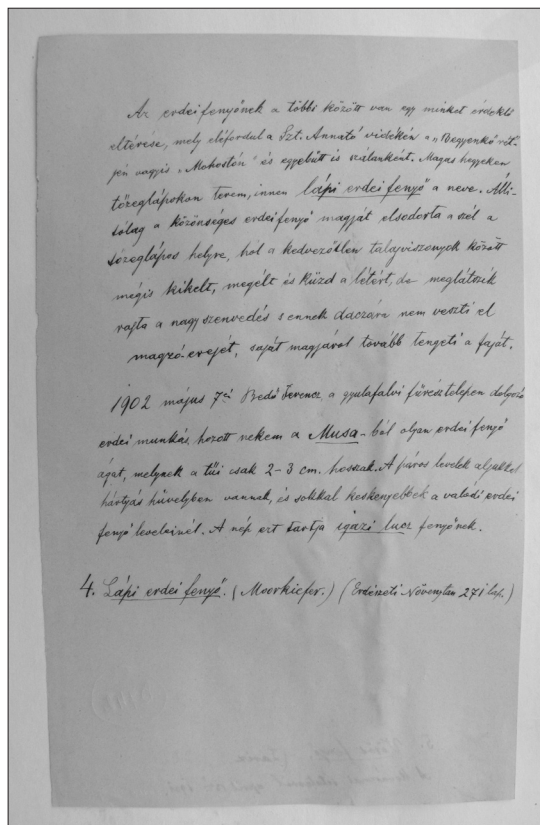 Az erdei fenyőnek a többi között van egy minket érdeklő
eltérése, mely előfordul a Szt. Annató vidékén a „Begyenkő rét-
jén vagyis „Mohostón" és egyebütt is szálanként. Magas hegyeken
tőzeglápokon terem, innen lápi erdei fenyő a neve. Álli-
tólag a közönséges erdei fenyő magját elsodorta a szél a
tőzeglápos helyre, hol a kedvezőtlen talajviszonyok között
mégis kikelt, megélt és küzd a létért, de meglátszik
rajta a nagy szenvedés s ennek daczára nem veszti el
magzó-erejét, saját magjáról tovább tengeti a faját.
1902 május 7én Bedő Ferencz a gyulafalvi fűrésztelepen dolgozó
erdei munkás hozott nekem a Musa-ból olyan erdei fenyő
ágat, melynek a tűi csak 2-3 cm. hosszak. A páros levelek aljukkal
hártyás hüvelyben vannak, és sokkal keskenyebbek a valódi erdei
fenyő leveleinél. A nép ezt tartja igazi lucz fenyőnek.
4. Lápi erdei fenyő. (Moorkiefer.) (Erdészeti Növénytan 271 lap.)